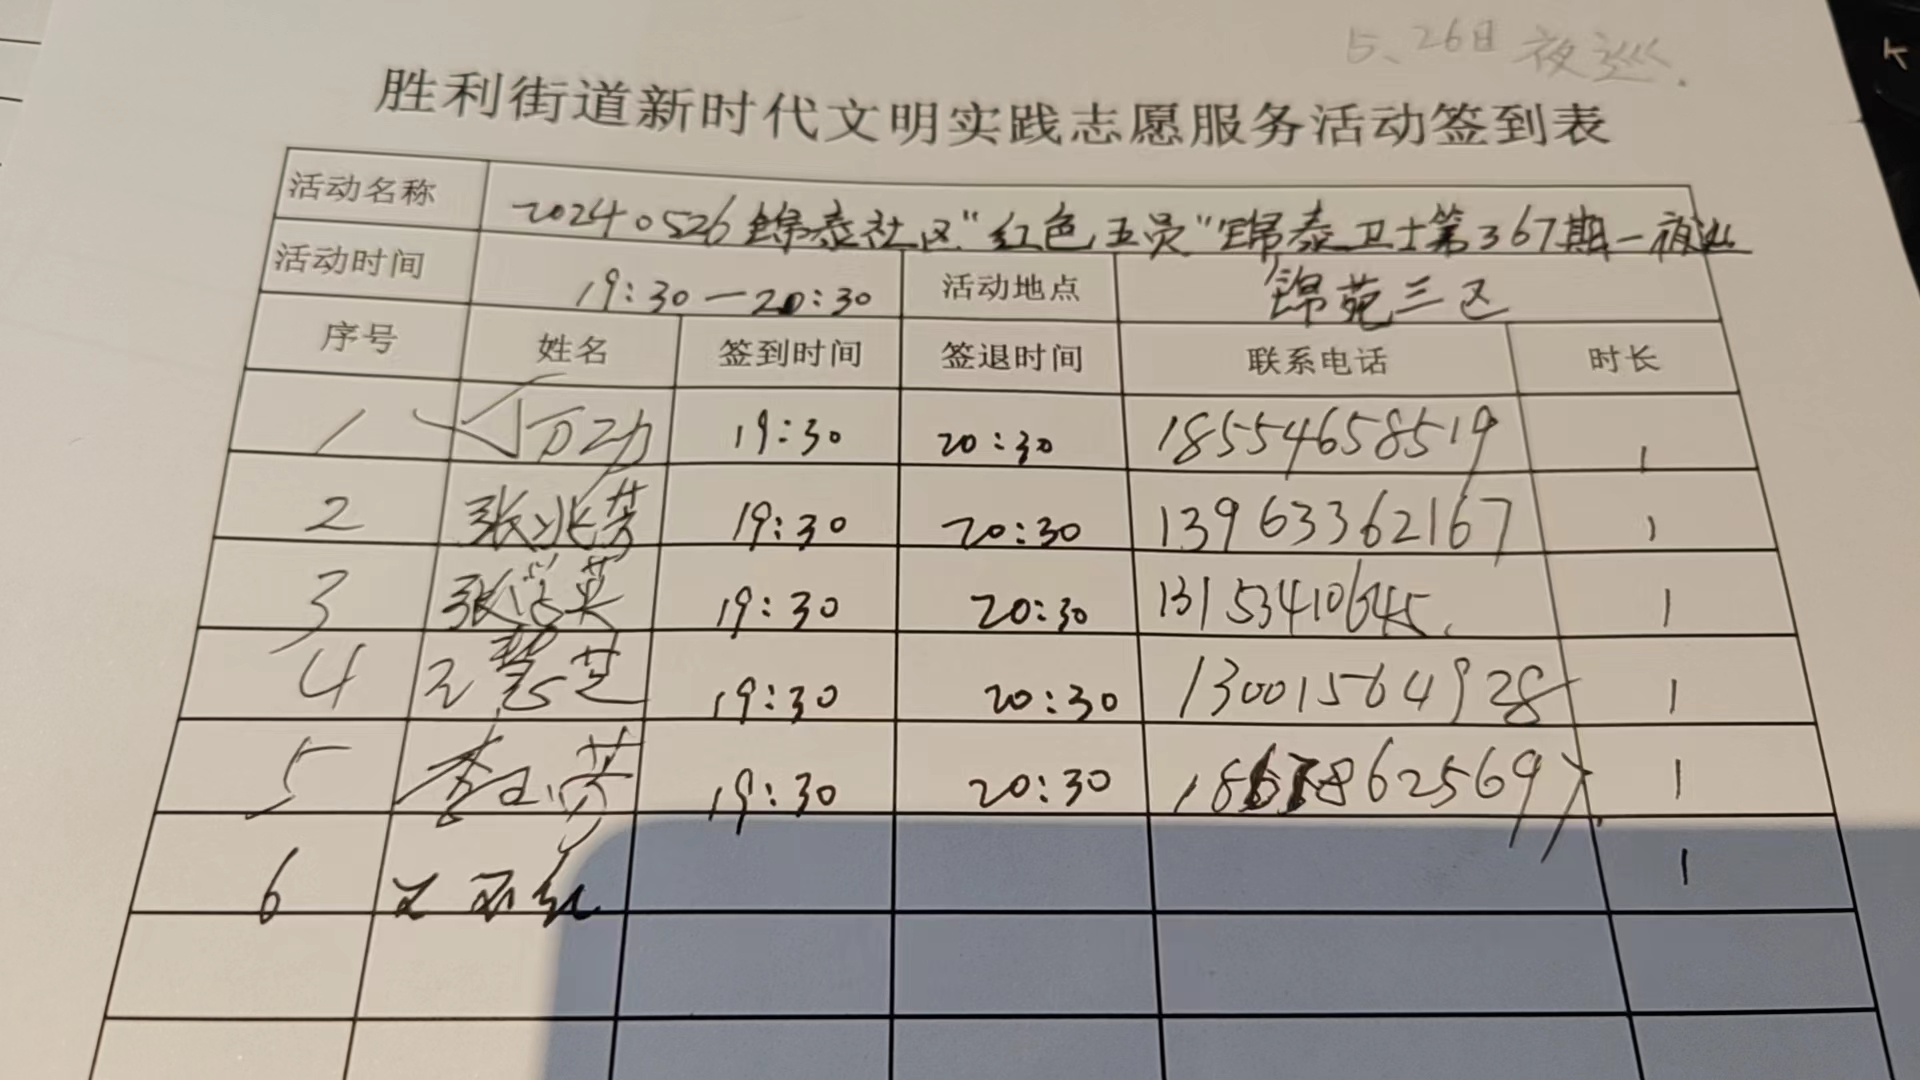 5、26日 夜巡.
胜利街道新时代文明实践志愿服务活动签到表
活动名称 20240526锦泰社区"红色五员"锦泰卫士第367期一夜巡
活动时间 19:30—20:30 活动地点 锦苑三区
序号 姓名 签到时间 签退时间 联系电话 时长
1 19:30 20:30 18554658519 1
2 张兆芳 19:30 20:30 13963362167 1
3 张学英 19:30 20:30 13153410645. 1
4 王慧芝 19:30 20:30 13001564928 1
5 李玉芳 19:30 20:30 1
6 1